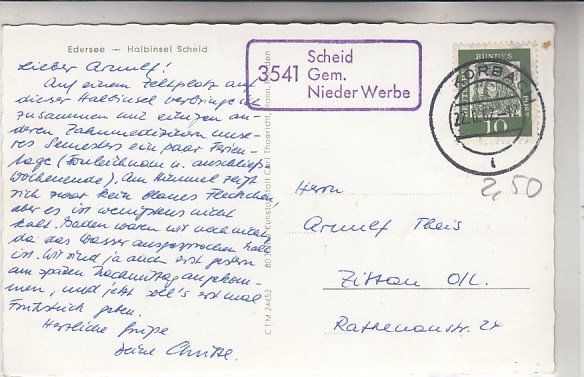 Edersee — Halbinsel Scheid
Lieber Arnulf!
Auf einem Zeltplatz auf
dieser Halbinsel verbringe ich
zusammen mit einigen an-
deren Zahnmedizinern unse-
res Semesters ein paar Ferien-
tage (Fronleichnam u. anschließ.
Wochenende). Am Himmel zeigt
sich zwar kein blaues Fleckchen,
aber es ist wenigstens nicht
kalt. Baden waren wir noch nicht,
da das Wasser ausgesprochen kalt
ist. Wir sind ja auch erst gestern
am späten Nachmittag angekom-
men, und jetzt soll's erst mal
Frühstück geben.
Herzliche Grüße
Deine
C T M 24452
Kunstanstalt Carl Thoericht, Hann. Münden
3541
Scheid
Gem.
Nieder Werbe
KORBACH
1
10
2,50
Herrn
Arnulf Theis
Zittau O/L.
Rathenaustr. 24